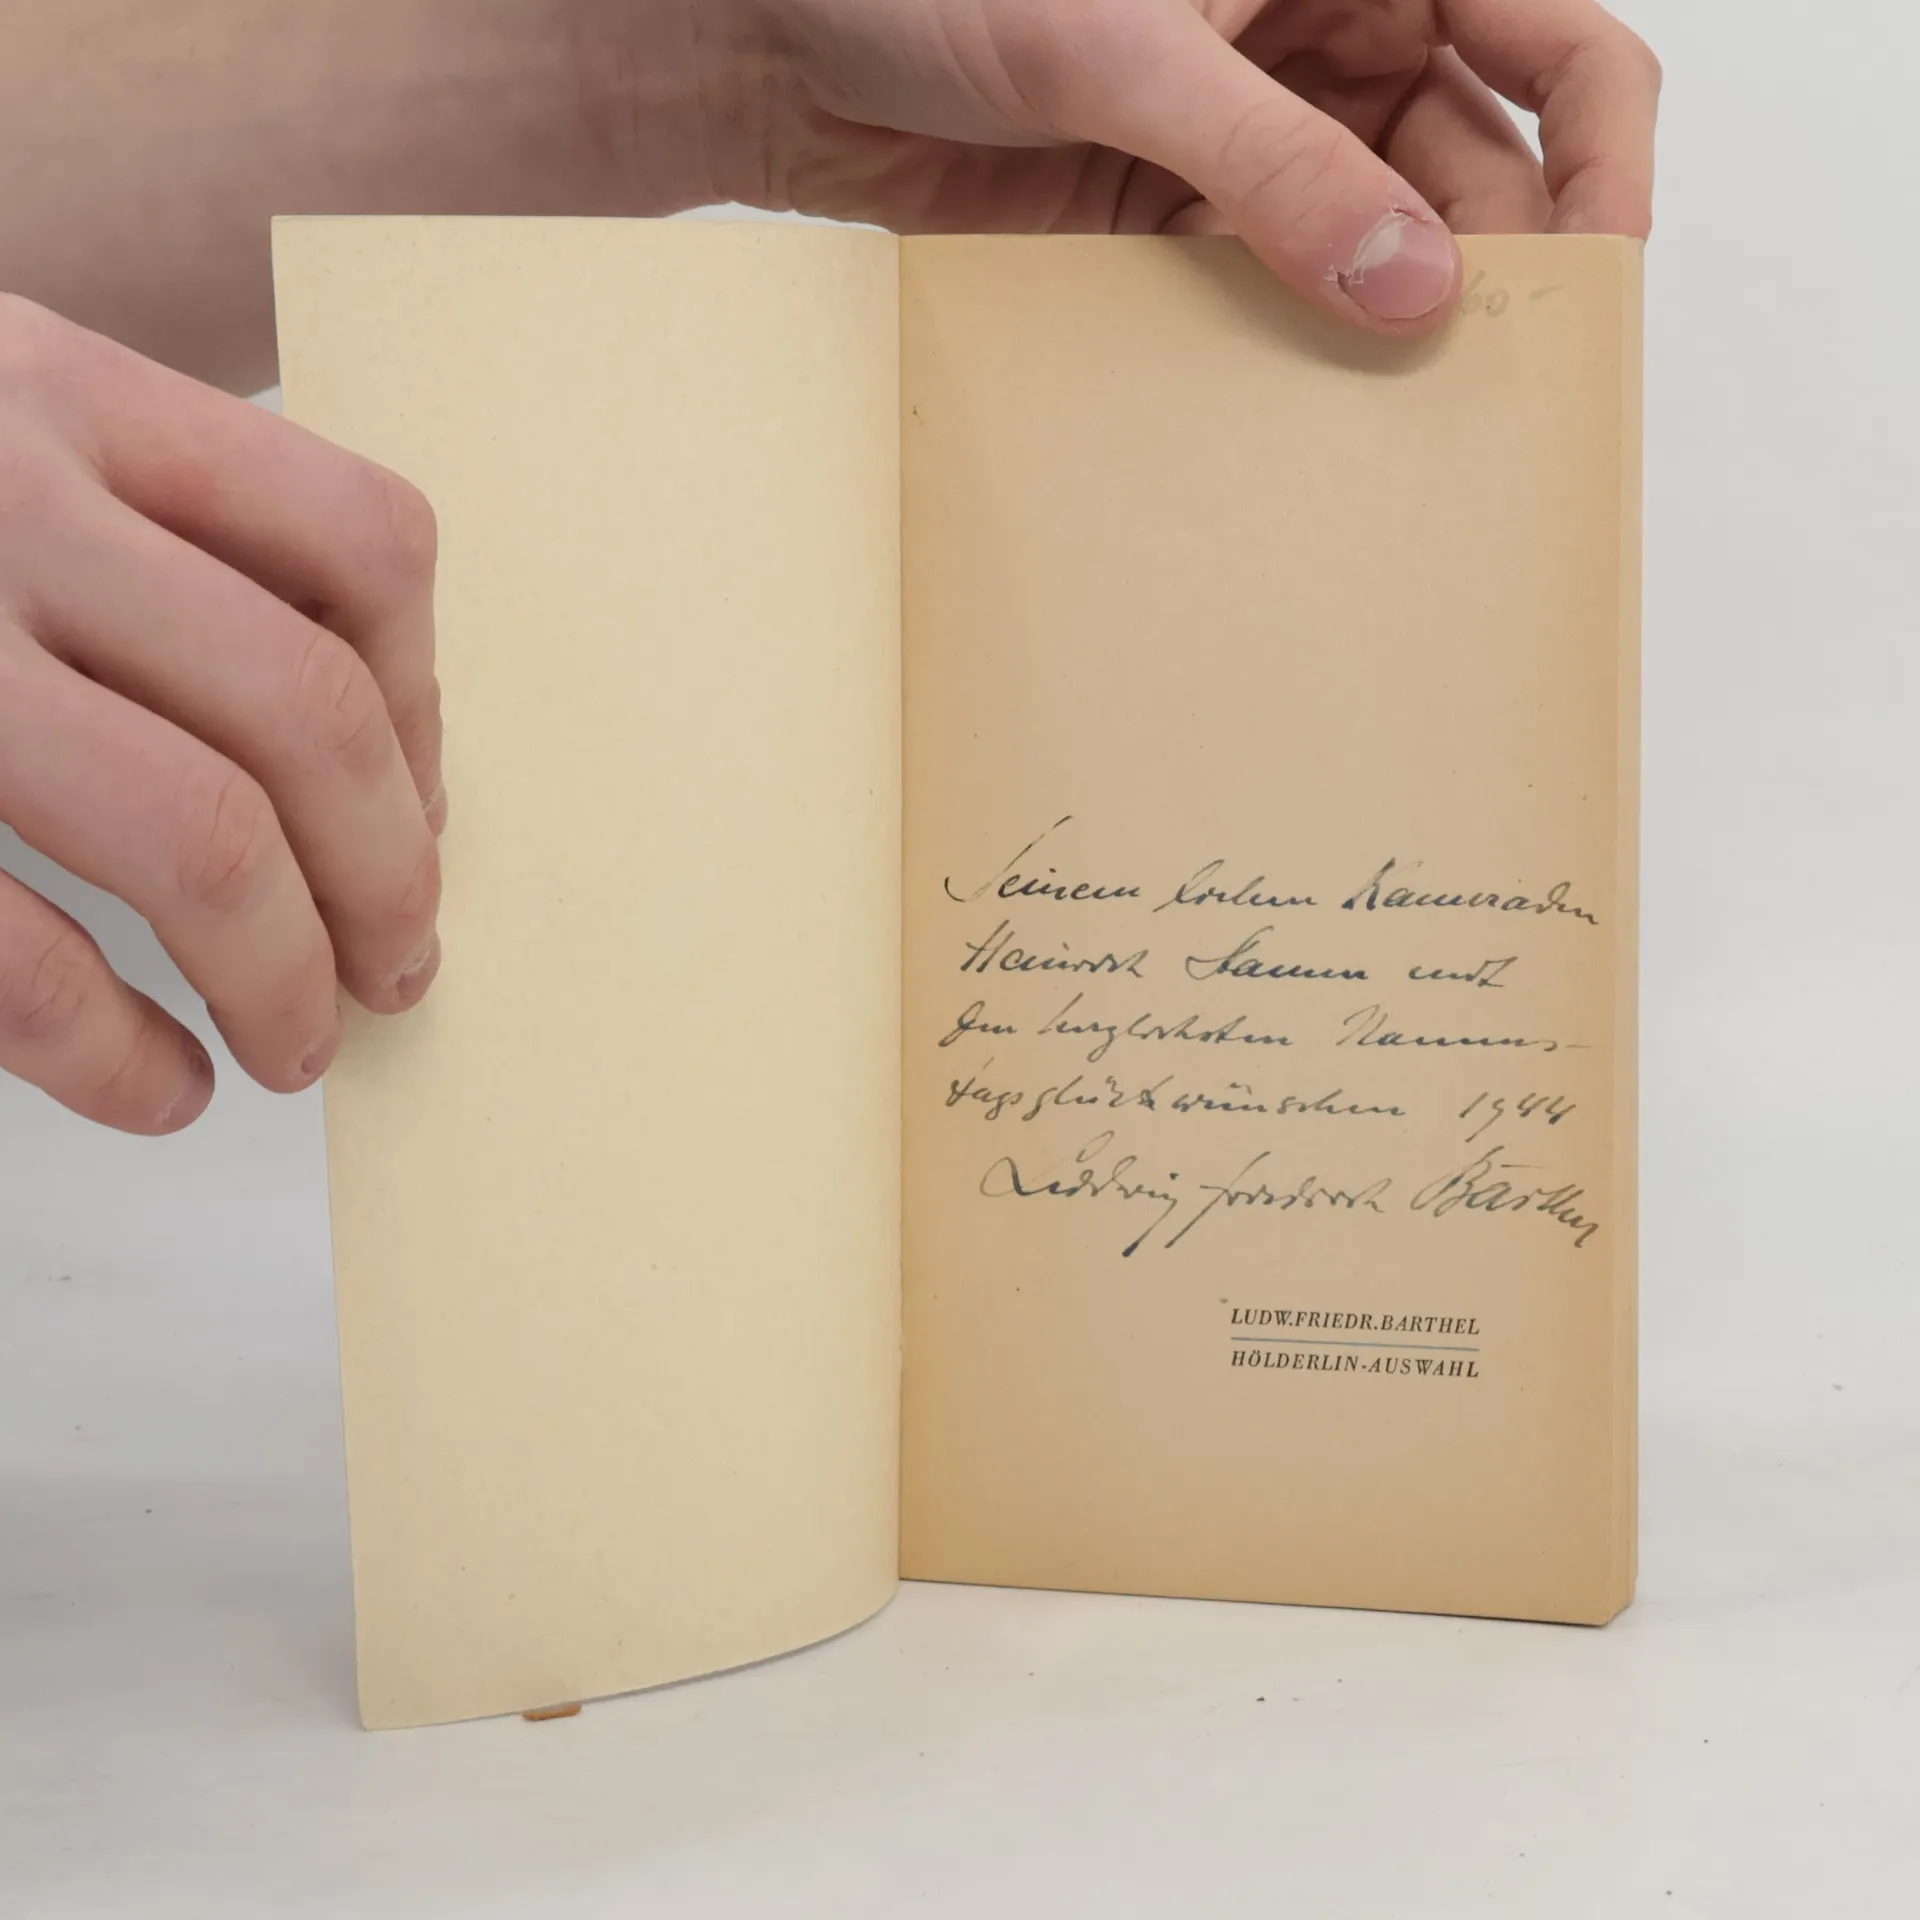 60-
Seinem lieben Kameraden
Heinrich Stamm mit
den herzlichsten Namens-
tagsglückwünschen 1944
Ludwig Friedrich Barthel
LUDW.FRIEDR.BARTHEL
HÖLDERLIN-AUSWAHL